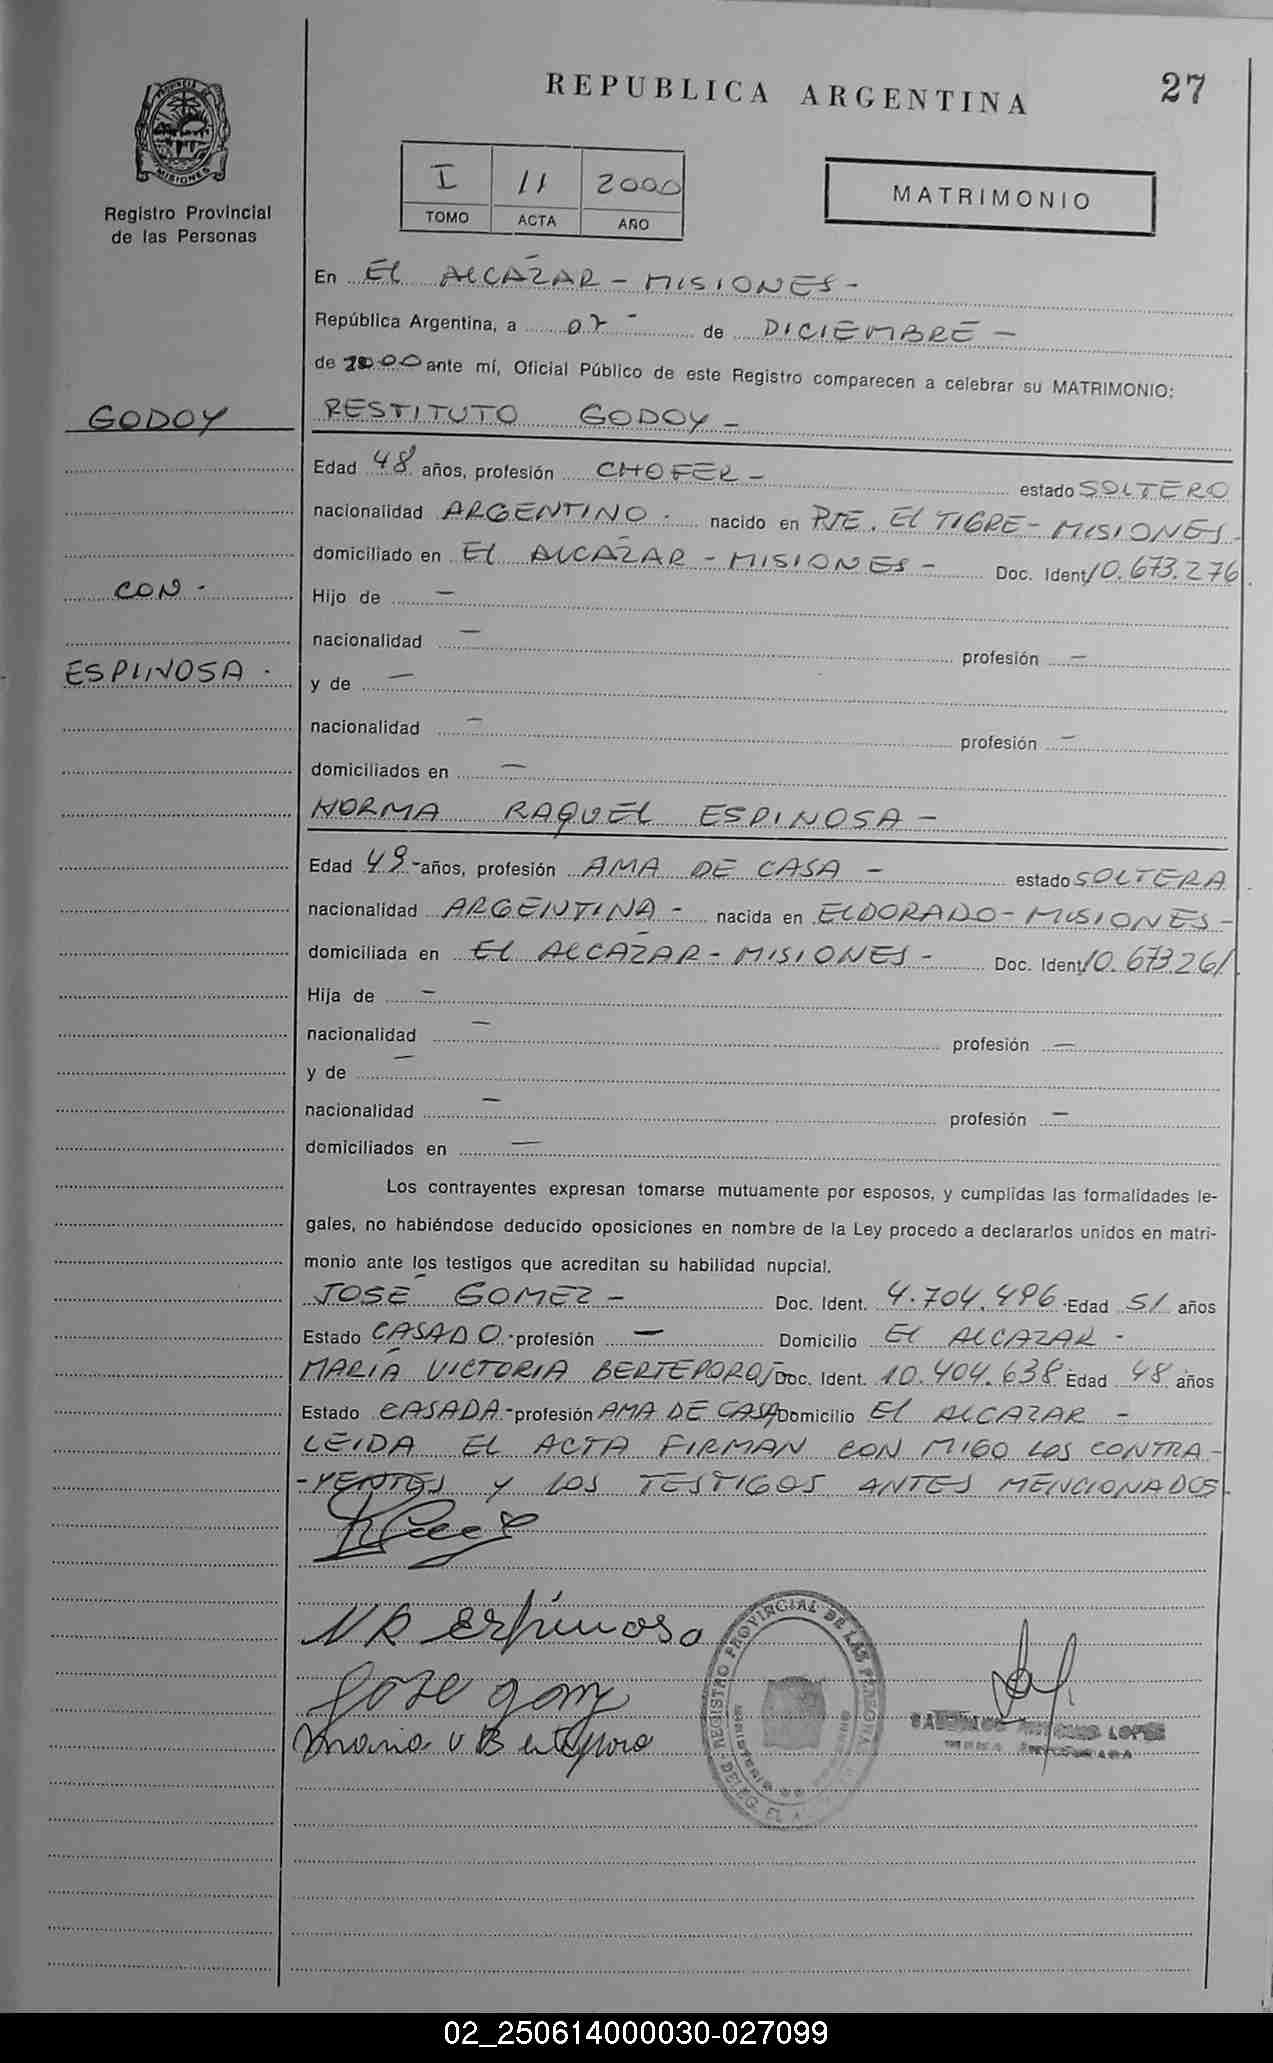 REPUBLICA ARGENTINA
27
PROVINCIA DE
MISIONES
Registro Provincial
de las Personas
I 11 2000
TOMO ACTA AÑO
MATRIMONIO
En EL ALCAZAR - MISIONES -
República Argentina, a 07 - de DICIEMBRE -
de 2000 ante mí, Oficial Público de este Registro comparecen a celebrar su MATRIMONIO:
GODOY
RESTITUTO GODOY -
Edad 48 años, profesión CHOFER - estado SOLTERO
nacionalidad ARGENTINO. nacido en PTE. EL TIGRE - MISIONES -
domiciliado en EL ALCAZAR - MISIONES - Doc. Ident. 10.673.276.
CON -
Hijo de -
nacionalidad - profesión -
ESPINOSA.
y de -
nacionalidad - profesión -
domiciliados en -
NORMA RAQUEL ESPINOSA -
Edad 49 - años, profesión AMA DE CASA - estado SOLTERA.
nacionalidad ARGENTINA - nacida en ELDORADO - MISIONES -
domiciliada en EL ALCAZAR - MISIONES - Doc. Ident. 10.673.261.
Hija de -
nacionalidad - profesión -
y de -
nacionalidad - profesión -
domiciliados en -
Los contrayentes expresan tomarse mutuamente por esposos, y cumplidas las formalidades le-
gales, no habiéndose deducido oposiciones en nombre de la Ley procedo a declararlos unidos en matri-
monio ante los testigos que acreditan su habilidad nupcial.
JOSÉ GOMEZ - Doc. Ident. 4.704.496. Edad 51 años
Estado CASADO - profesión - Domicilio EL ALCAZAR -
MARÍA VICTORIA BERTEPORO/ Doc. Ident. 10.404.638 Edad 48 años
Estado CASADA - profesión AMA DE CASA/ Domicilio EL ALCAZAR -
LEIDA EL ACTA FIRMAN CON MIGO LOS CONTRA-
-YENTES Y LOS TESTIGOS ANTES MENCIONADOS.
NR espinosa
Jose gomz
maria v Berteporo
REGISTRO PROVINCIAL DE LAS PERSONAS
DELEG. EL
MINISTERIO DE
LOPEZ
02_250614000030-027099